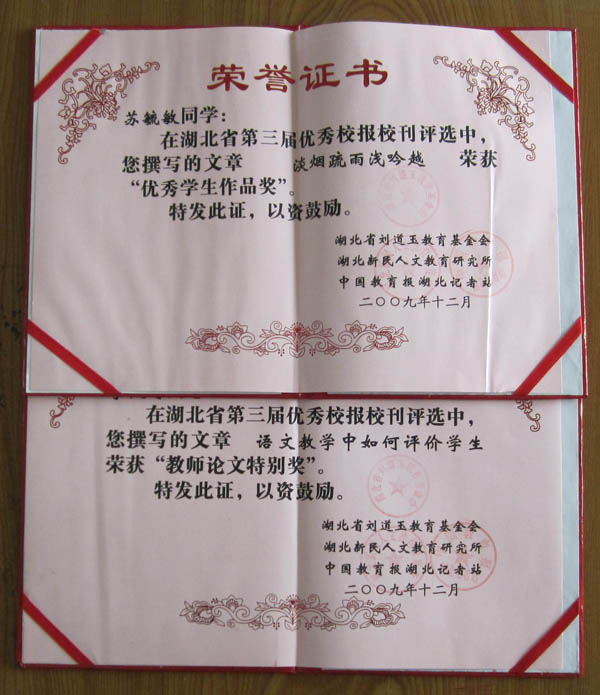 荣誉证书
苏毓敏同学:
在湖北省第三届优秀校报校刊评选中,
您撰写的文章 淡烟疏雨浅吟越 荣获
“优秀学生作品奖”。
特发此证,以资鼓励。
湖北省刘道玉教育基金会
湖北新民人文教育研究所
中国教育报湖北记者站
二〇〇九年十二月
在湖北省第三届优秀校报校刊评选中,
您撰写的文章 语文教学中如何评价学生
荣获“教师论文特别奖”。
特发此证,以资鼓励。
湖北省刘道玉教育基金会
湖北新民人文教育研究所
中国教育报湖北记者站
二〇〇九年十二月